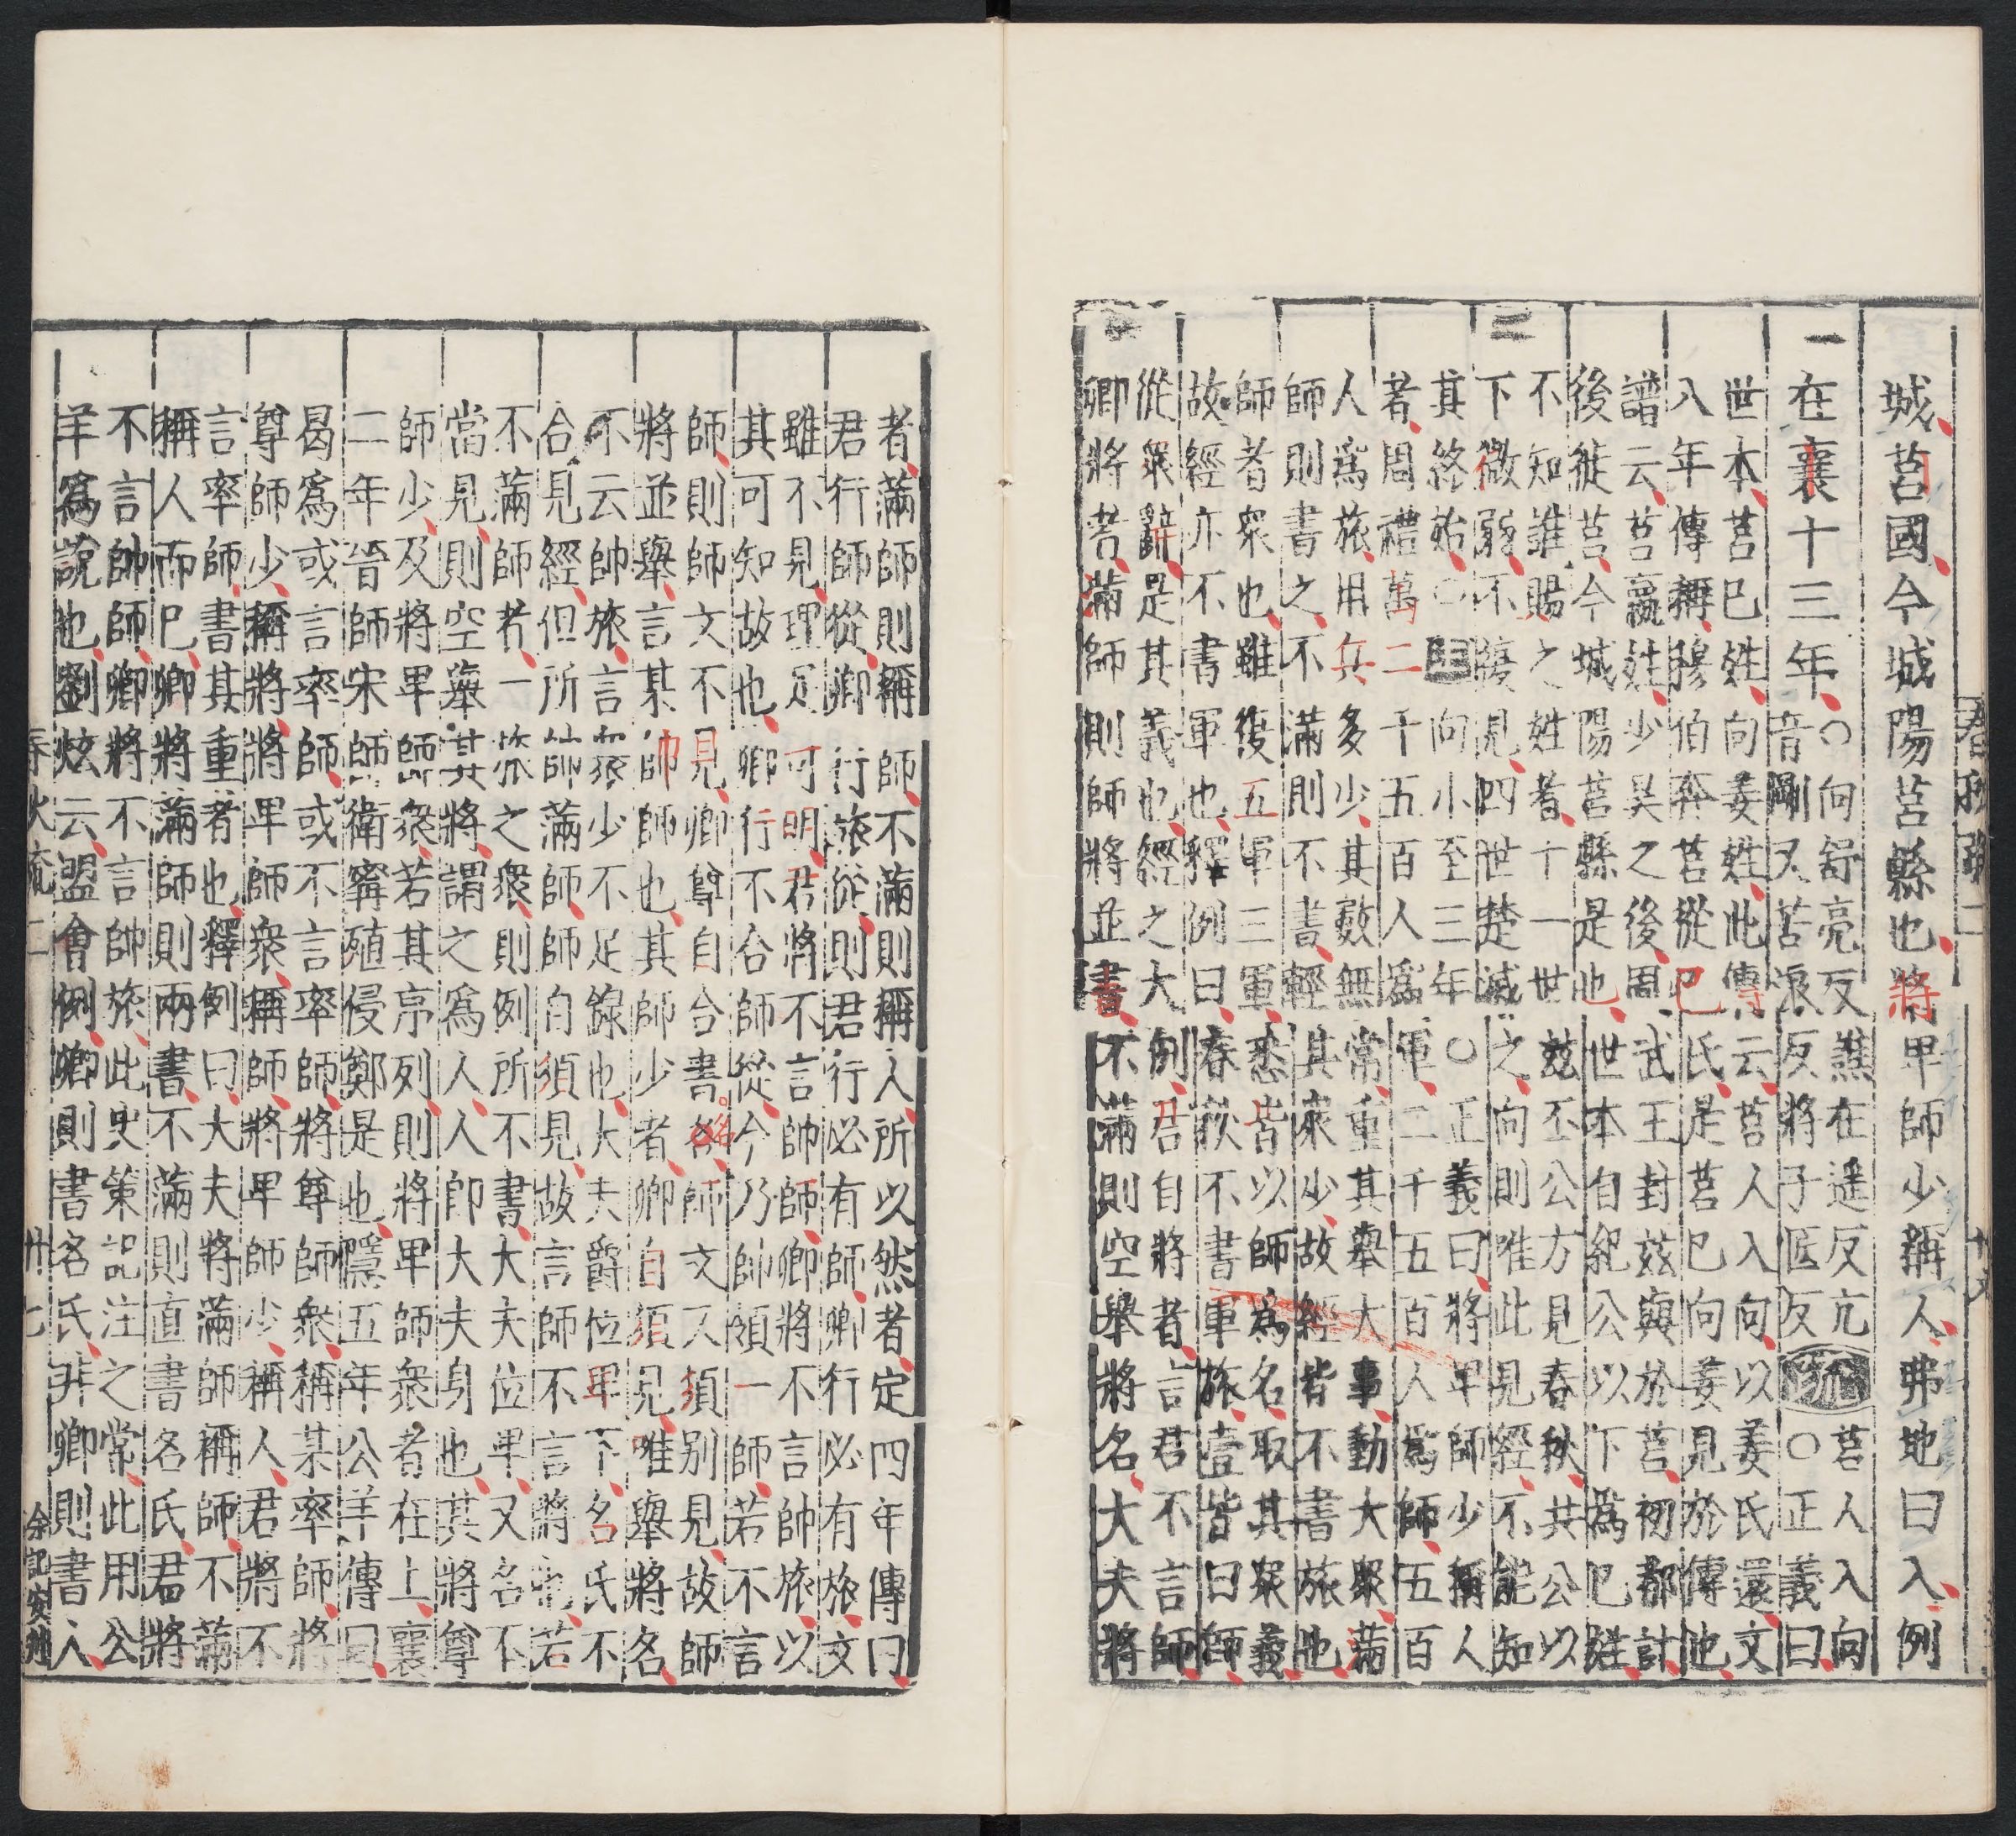 城莒國今城陽莒縣也將卑師少稱人弗地曰入例
在襄十三年○向舒亮反譙在遥反亢
音剛又苦浪反將子匠反疏莒人入向
○正義曰
世本莒巳姓向姜姓此傳云莒人入向以姜氏還文
八年傳稱穆伯奔莒從巳氏是莒巳向姜見於傳也
譜云莒嬴姓少昊之後周武王封兹與於莒初都計
後徙莒今城陽莒縣是也世本自紀公以下為巳姓
不知誰賜之姓者十一世兹丕公方見春秋共公以
下微弱不復見四世楚滅之向則唯此見經不能知
其終始○注向小至三年○正義曰將卑師少稱人
者周禮萬二千五百人為軍二千五百人爲師五百
人爲旅用兵多少其數無常重其舉大事動大衆滿
師則書之不滿則不書輕其衆少故經皆不書旅也
師者衆也雖復五軍三軍悉皆以師為名取其衆義
故經亦不書軍也釋例曰春秋不書軍旅壹皆曰師
從衆辭是其義也經之大例君自將者言君不言師
卿將者滿師則師將並書不滿則空舉將名大夫將
者滿師則稱師不滿則稱人所以然者定四年傳曰
君行師從卿行旅從則君行必有師卿行必有旅文
雖不見理足可明君將不言帥師卿將不言帥旅以
其可知故也卿行不合師從今乃帥領一師若不言
師則師文不見卿尊自合書名師文又須別見故師
將並舉言某帥師也其師少者卿自須見唯舉將名
不云帥旅言衆少不足錄也大夫爵位卑下名氏不
合見經但所帥滿師師自須見故言師不言將若
不滿師者一旅之衆則例所不書大夫位卑又名不
當見則空舉其將謂之爲人人即大夫身也其將尊
師少及將卑師衆若其序列則將卑師衆者在上襄
二年晉師宋師衛甯殖侵鄭是也隱五年公羊傳曰
曷爲或言率師或不言率師將尊師衆稱某率師將
尊師少稱將將卑師衆稱師將卑師少稱人君將不
言率師書其重者也釋例曰大夫將滿師稱師不滿
稱人而已卿將滿師則兩書不滿則直書名氏君將
不言帥師卿將不言帥旅此史策記注之常此用公
羊爲說也劉炫云盟會例卿則書名氏非卿則書人
春秋疏二
廿七